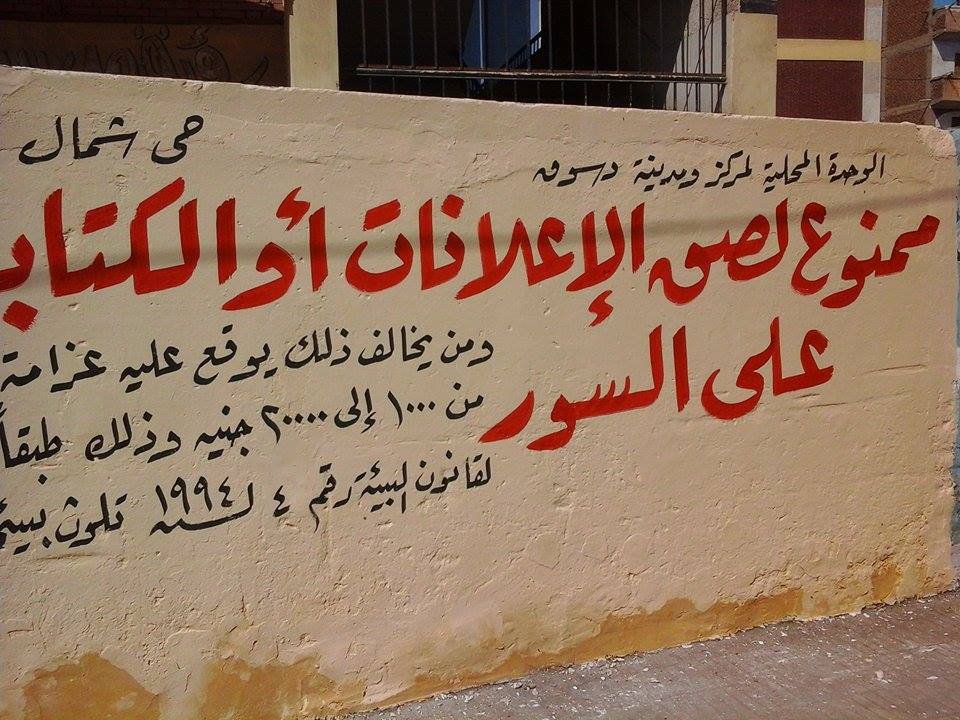 الوحدة المحلية لمركز ومدينة دسوق
حى شمال
ممنوع لصق الإعلانات أو الكتاب
على السور
ومن يخالف ذلك يوقع عليه غرامة
من ١٠٠٠ إلى ٢٠٠٠٠ جنيه وذلك طبقاً
لقانون البيئة رقم ٤ لسنه ١٩٩٤ تلوث